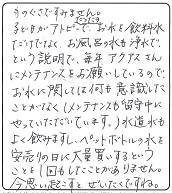 ものぐさですみません。
子どもがアトピーで、お水を飲料水
だけでなく、お風呂の水も浄水で
という説明で、毎年アクアスさん
にメンテナンスをお願いしているので、
お水に関しては何も意識した
ことがなく(メンテナンスも留守中に
やっていただいています。)水道水も
よく飲みますし、ペットボトルの水を
安売りの日に大量買いするという
ことも1回もしたことがありません。
今思い起こすと、ぜいたくですね。